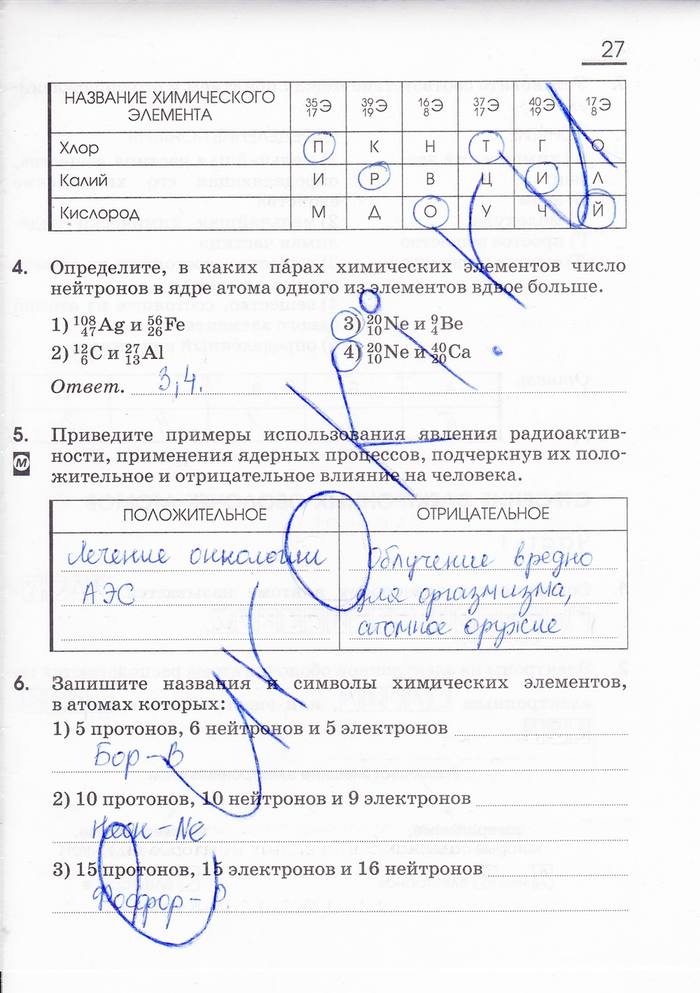 27
НАЗВАНИЕ ХИМИЧЕСКОГО ЭЛЕМЕНТА 35 17 Э 39 19 Э 16 8 Э 37 17 Э 40 19 Э 17 8 Э
Хлор П К Н Т Г О
Калий И Р В Ц И Л
Кислород М Д О У Ч Й
4. Определите, в каких па́рах химических элементов число
нейтронов в ядре атома одного из элементов вдвое больше.
1) 108 47 Ag и 56 26 Fe 3) 20 10 Ne и 9 4 Be
2) 12 6 C и 27 13 Al 4) 20 10 Ne и 40 20 Ca
Ответ. 3,4.
5. Приведите примеры использования явления радиоактив-
М ности, применения ядерных процессов, подчеркнув их поло-
жительное и отрицательное влияние на человека.
ПОЛОЖИТЕЛЬНОЕ ОТРИЦАТЕЛЬНОЕ
Лечение онкологии Облучение вредно
АЭС для оргазмизма,
атомное оружие
6. Запишите названия и символы химических элементов,
в атомах которых:
1) 5 протонов, 6 нейтронов и 5 электронов
Бор - В
2) 10 протонов, 10 нейтронов и 9 электронов
Неон - Ne
3) 15 протонов, 15 электронов и 16 нейтронов
Фосфор - P.